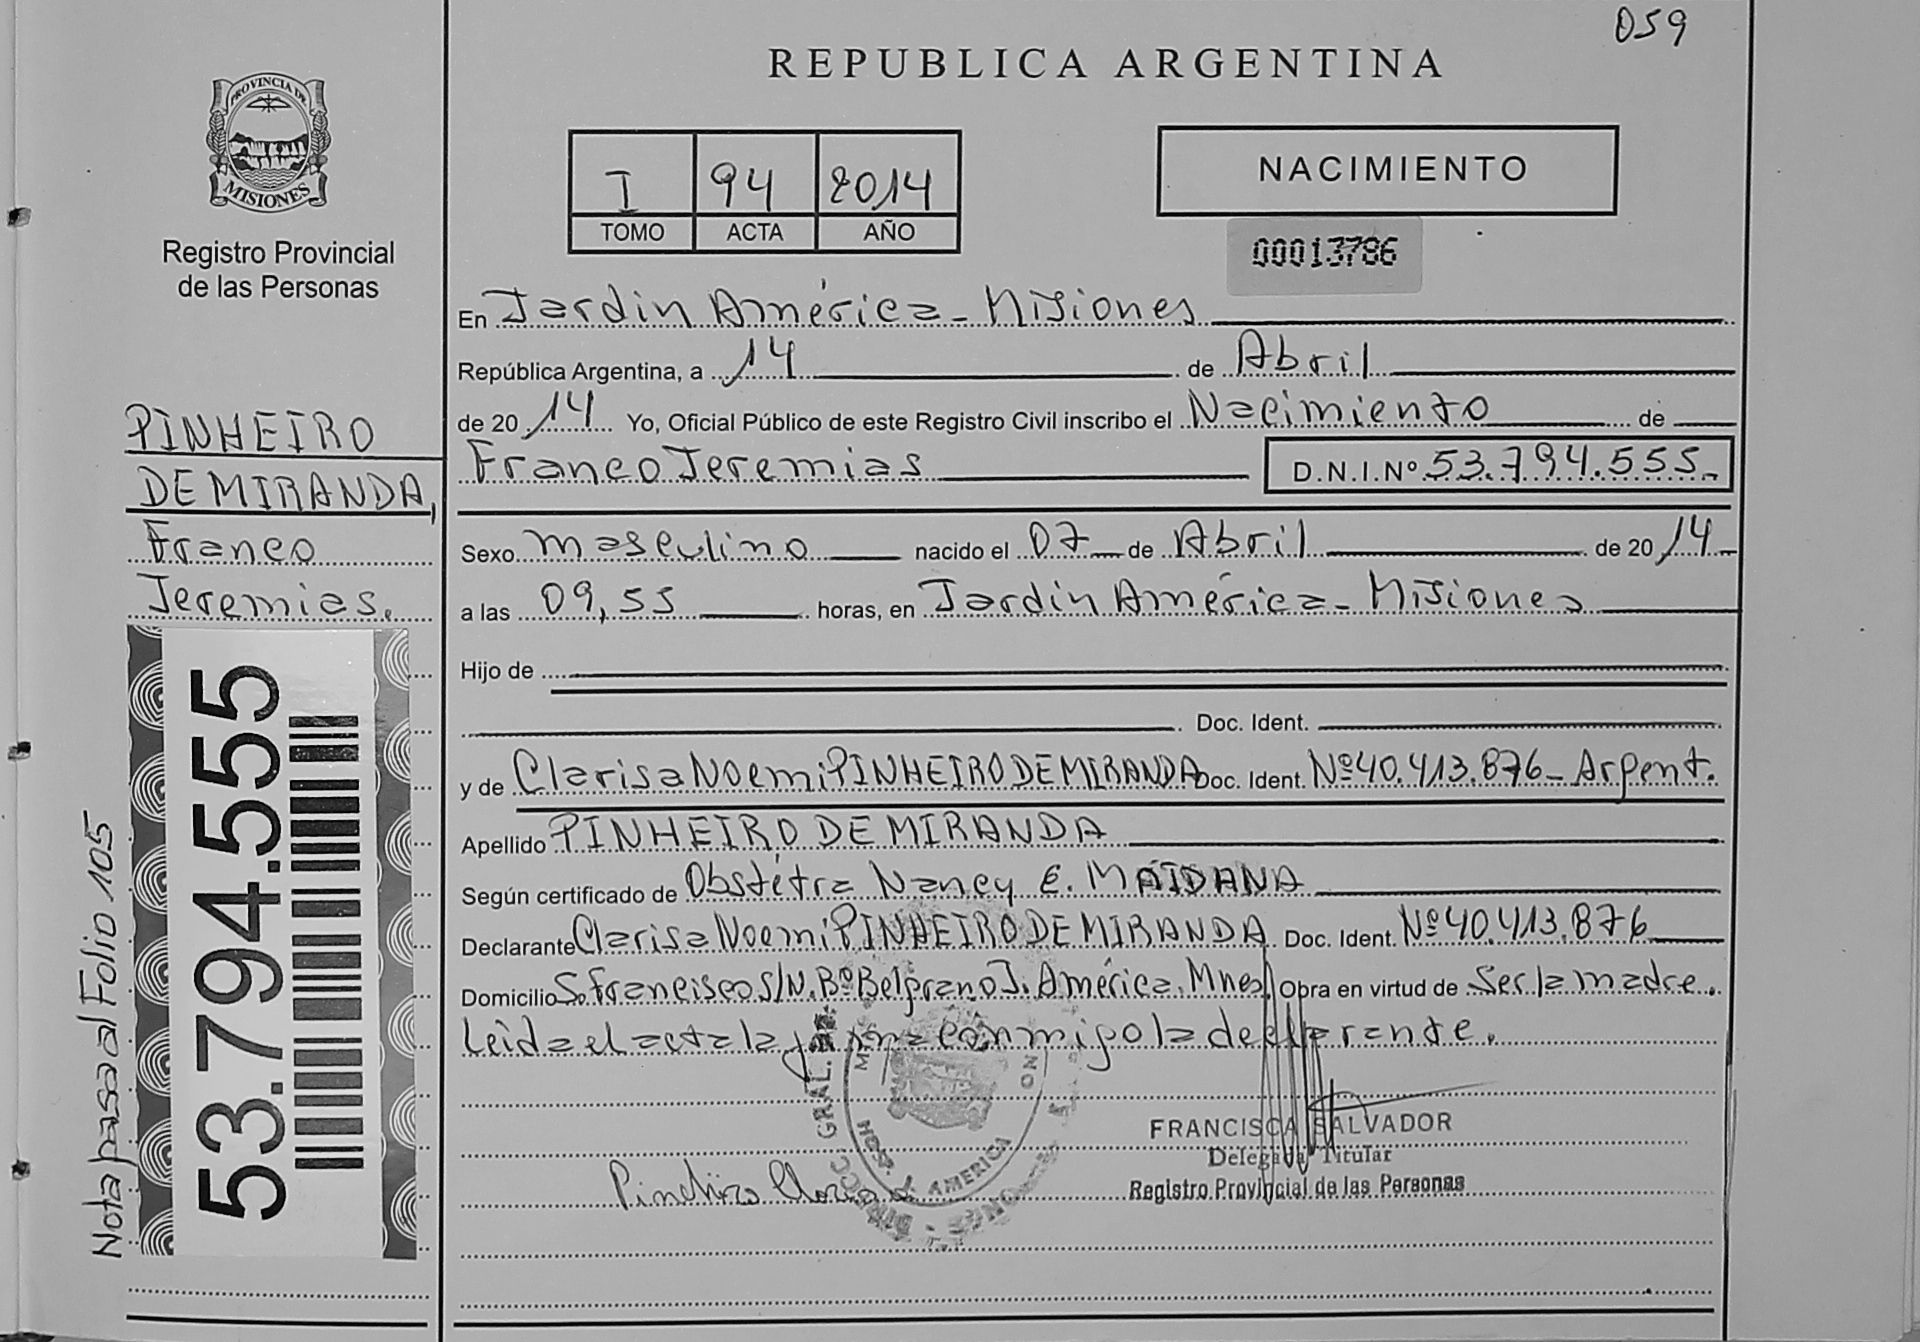 059
REPUBLICA ARGENTINA
PROVINCIA DE
MISIONES
Registro Provincial
de las Personas
I 94 2014
TOMO ACTA AÑO
NACIMIENTO
00013786
En Jardín América - Misiones
República Argentina, a 14 de Abril
de 2014 Yo, Oficial Público de este Registro Civil inscribo el Nacimiento de
Franco Jeremias D.N.I.Nº 53.794.555.-
PINHEIRO
DE MIRANDA,
Franco
Jeremias.
Sexo masculino nacido el 07 de Abril de 2014
a las 09,55 horas, en Jardín América - Misiones
Hijo de
Doc. Ident.
y de Clarisa Noemi PINHEIRO DE MIRANDA Doc. Ident. Nº 40.413.876 - Argent.
Apellido PINHEIRO DE MIRANDA
Según certificado de Obstétra Nancy E. MAIDANA
Declarante Clarisa Noemi PINHEIRO DE MIRANDA Doc. Ident. Nº 40.413.876
Domicilio S. Francisco S/N. Bº Belgrano J. América. Mnes Obra en virtud de Ser la madre.
Leida el acta la firma conmigo la declarante.
53.794.555
Nota pasa al Folio 105
GRAL.
HOSP. J. AMERICA
FRANCISCA SALVADOR
Delegada Titular
Registro Provincial de las Personas